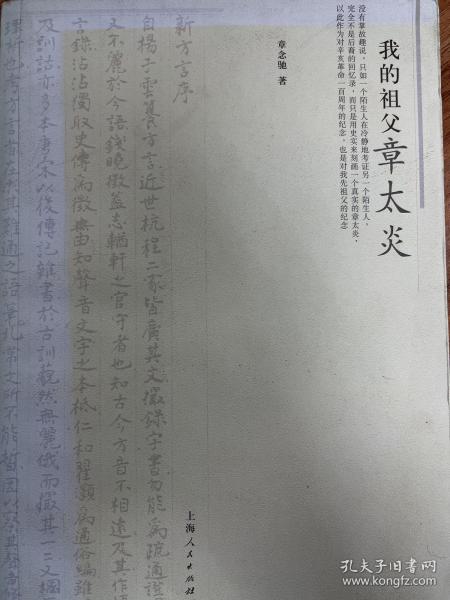 我的祖父章太炎
没有掌故趣说，只如一个陌生人在冷静地考证另一个陌生人，
完全不是后裔的回忆录，而只是用史实来刻画一个真实的章太炎，
以此作为对辛亥革命一百周年的纪念，也是对我先祖父的纪念
章念驰 著
新方言序
自楊子雲纂方言近世杭程二家皆廣其文撮錄字書勿能為疏通證
又不麗於今語錢曉徵蓋志輶軒之官守者也知古今方音不相遠及其作
言錄沾沾獨取史傳為徵無由知聲音文字之本柢仁和翟灝為通俗編雖
及訓詁亦多本唐宋以後傳記雜書於古訓藐然無麗俄而撮其一二又楓
上海人民出版社
孔夫子旧书网